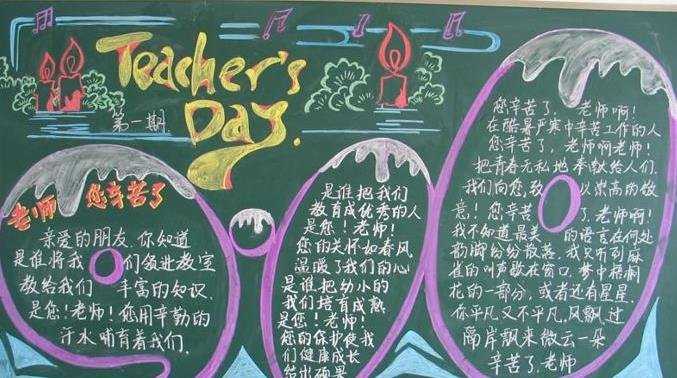 Teacher's
Day.
第一期
老师 您辛苦了
亲爱的朋友,你知道
是谁将我们领进教室
教给我们丰富的知识.
是您!老师!您用辛勤的
汗水哺育着我们.
是谁把我们
教育成优秀的人
是您!老师!
您的关怀如春风
温暖了我们的心
是谁把幼小的
我们培育成熟
是您!老师!
您的保护使我
们健康成长
结出硕果
您辛苦了,老师啊!
在酷暑严寒中辛苦工作的人
您辛苦了,老师啊老师!
把青春无私地奉献给人们.
我们向您,致以崇高的敬
意!您辛苦了,老师啊!
我不知道最美的语言在何处
韵脚纷纷散落,我只听到麻
雀的叫声歇在窗口,梦中栀
花的一部分,或者还有星星.
你平凡又不平凡,风飘过
岸飘来微云一朵
辛苦了,老师